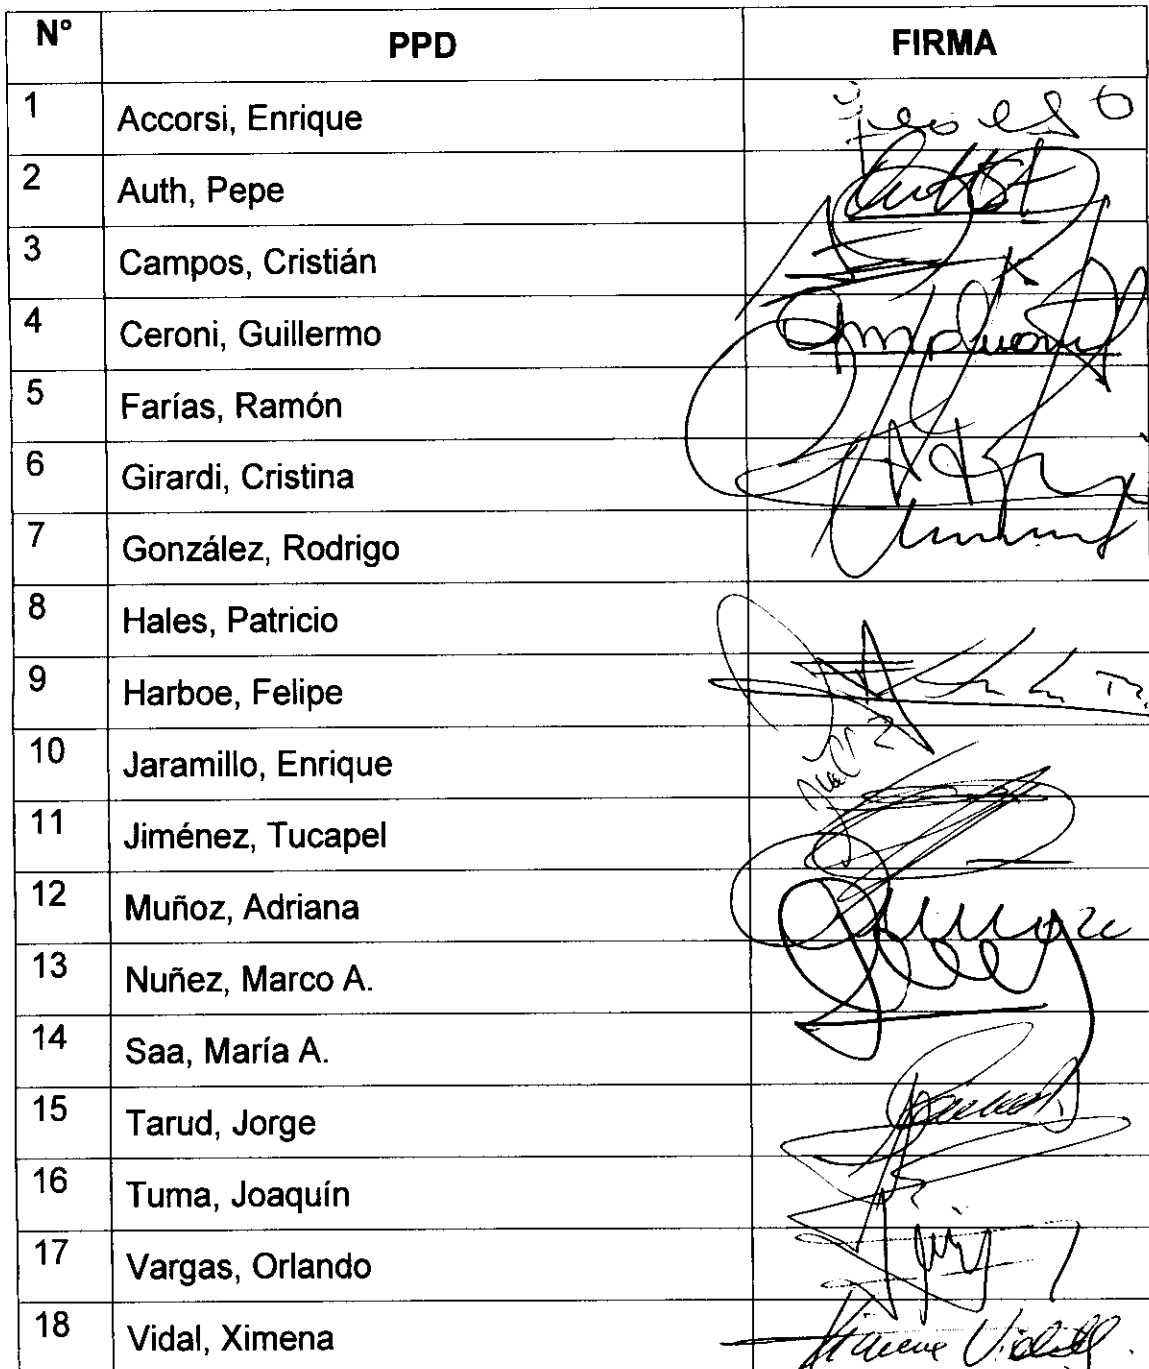 N° PPD FIRMA
1 Accorsi, Enrique
2 Auth, Pepe
3 Campos, Cristián
4 Ceroni, Guillermo
5 Farías, Ramón
6 Girardi, Cristina
7 González, Rodrigo
8 Hales, Patricio
9 Harboe, Felipe
10 Jaramillo, Enrique
11 Jiménez, Tucapel
12 Muñoz, Adriana
13 Nuñez, Marco A.
14 Saa, María A.
15 Tarud, Jorge
16 Tuma, Joaquín
17 Vargas, Orlando
18 Vidal, Ximena Ximena Vidal